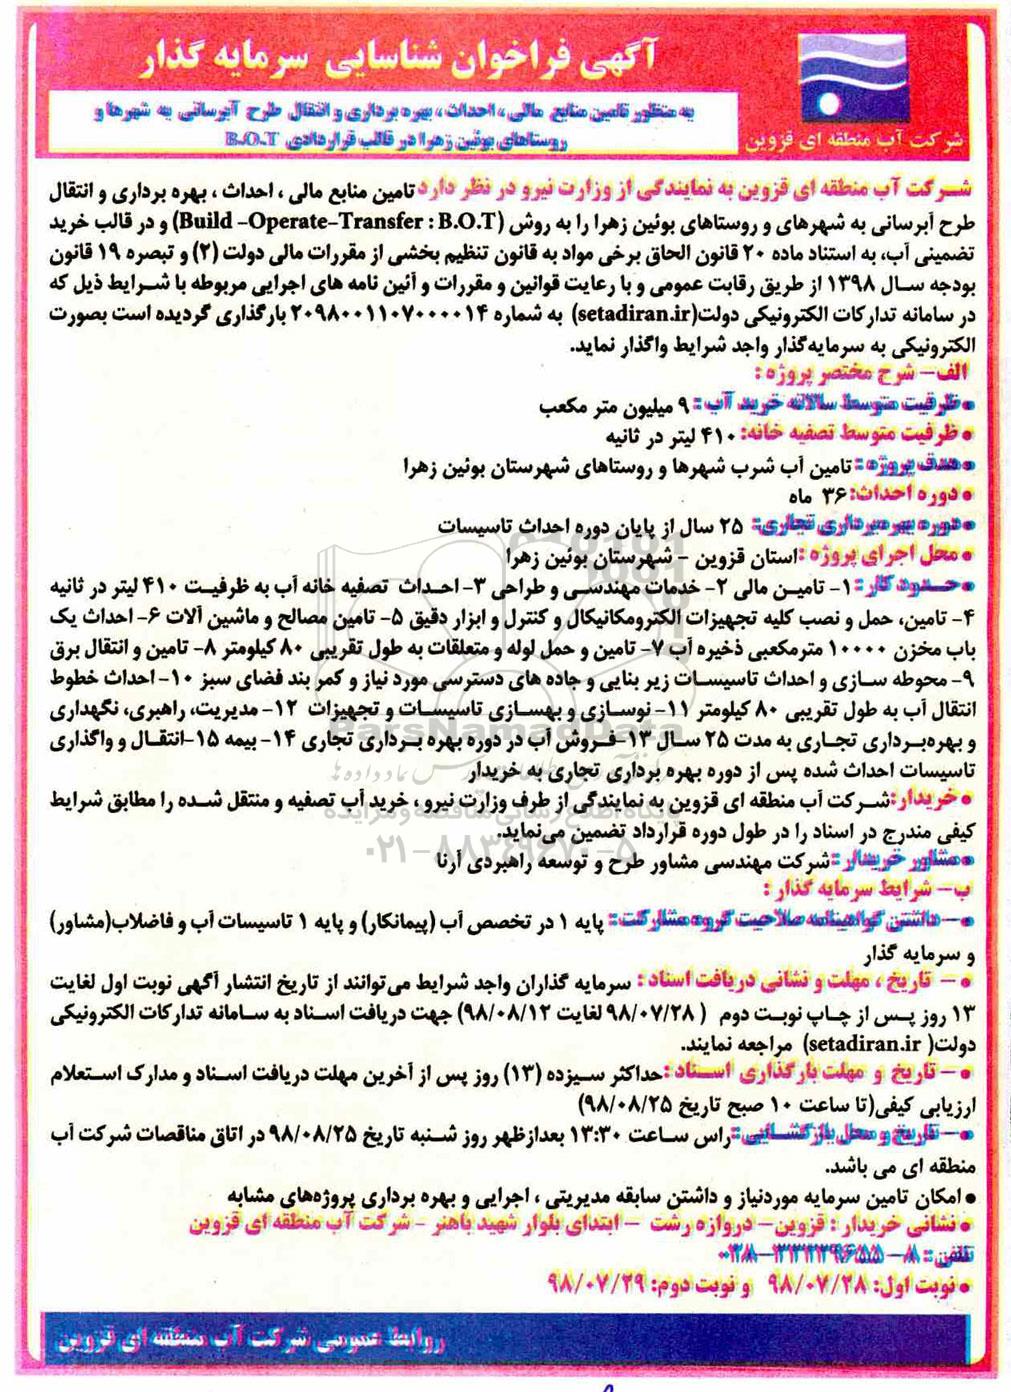 آگهی فراخوان شناسایی سرمایه گذار
به منظور تامین منابع مالی، احداث، بهره برداری و انتقال طرح آبرسانی به شهرها و
روستاهای بوئین زهرا در قالب قراردادی B.O.T
شرکت آب منطقه ای قزوین
شرکت آب منطقه ای قزوین به نمایندگی از وزارت نیرو در نظر دارد تامین منابع مالی ، احداث ، بهره برداری و انتقال
طرح آبرسانی به شهرهای و روستاهای بوئین زهرا را به روش (Build –Operate–Transfer : B.O.T) و در قالب خرید
تضمینی آب، به استناد ماده ۲۰ قانون الحاق برخی مواد به قانون تنظیم بخشی از مقررات مالی دولت (۲) و تبصره ۱۹ قانون
بودجه سال ۱۳۹۸ از طریق رقابت عمومی و با رعایت قوانین و مقررات و آئین نامه های اجرایی مربوطه با شرایط ذیل که
در سامانه تدارکات الکترونیکی دولت(setadiran.ir) به شماره ۲۰۹۸۰۰۱۱۰۷۰۰۰۰۱۴ بارگذاری گردیده است بصورت
الکترونیکی به سرمایه‌گذار واجد شرایط واگذار نماید.
الف– شرح مختصر پروژه :
• ظرفیت متوسط سالانه خرید آب: ۹ میلیون متر مکعب
• ظرفیت متوسط تصفیه خانه: ۴۱۰ لیتر در ثانیه
• هدف پروژه : تامین آب شرب شهرها و روستاهای شهرستان بوئین زهرا
• دوره احداث: ۳۶ ماه
• دوره بهره‌برداری تجاری: ۲۵ سال از پایان دوره احداث تاسیسات
• محل اجرای پروژه : استان قزوین – شهرستان بوئین زهرا
• حدود کار : ۱– تامین مالی ۲– خدمات مهندسی و طراحی ۳– احداث تصفیه خانه آب به ظرفیت ۴۱۰ لیتر در ثانیه
۴– تامین، حمل و نصب کلیه تجهیزات الکترومکانیکال و کنترل و ابزار دقیق ۵– تامین مصالح و ماشین آلات ۶– احداث یک
باب مخزن ۱۰۰۰۰ مترمکعبی ذخیره آب ۷– تامین و حمل لوله و متعلقات به طول تقریبی ۸۰ کیلومتر ۸– تامین و انتقال برق
۹– محوطه سازی و احداث تاسیسات زیر بنایی و جاده های دسترسی مورد نیاز و کمر بند فضای سبز ۱۰– احداث خطوط
انتقال آب به طول تقریبی ۸۰ کیلومتر ۱۱– نوسازی و بهسازی تاسیسات و تجهیزات ۱۲– مدیریت، راهبری، نگهداری
و بهره‌برداری تجاری به مدت ۲۵ سال ۱۳–فروش آب در دوره بهره برداری تجاری ۱۴– بیمه ۱۵–انتقال و واگذاری
تاسیسات احداث شده پس از دوره بهره برداری تجاری به خریدار
• خریدار: شرکت آب منطقه ای قزوین به نمایندگی از طرف وزارت نیرو ، خرید آب تصفیه و منتقل شده را مطابق شرایط
کیفی مندرج در اسناد را در طول دوره قرارداد تضمین می‌نماید.
• مشاور خریدار : شرکت مهندسی مشاور طرح و توسعه راهبردی آرنا
ب– شرایط سرمایه گذار :
• – داشتن گواهینامه صلاحیت گروه مشارکت: پایه ۱ در تخصص آب (پیمانکار) و پایه ۱ تاسیسات آب و فاضلاب(مشاور)
و سرمایه گذار
• – تاریخ ، مهلت و نشانی دریافت اسناد : سرمایه گذاران واجد شرایط می‌توانند از تاریخ انتشار آگهی نوبت اول لغایت
۱۳ روز پس از چاپ نوبت دوم ( ۹۸/۰۷/۲۸ لغایت ۹۸/۰۸/۱۲) جهت دریافت اسناد به سامانه تدارکات الکترونیکی
دولت( setadiran.ir) مراجعه نمایند.
• – تاریخ و مهلت بارگذاری اسناد :حداکثر سیزده (۱۳) روز پس از آخرین مهلت دریافت اسناد و مدارک استعلام
ارزیابی کیفی(تا ساعت ۱۰ صبح تاریخ ۹۸/۰۸/۲۵)
• – تاریخ و محل بازگشایی: راس ساعت ۱۳:۳۰ بعدازظهر روز شنبه تاریخ ۹۸/۰۸/۲۵ در اتاق مناقصات شرکت آب
منطقه ای می باشد.
• امکان تامین سرمایه موردنیاز و داشتن سابقه مدیریتی ، اجرایی و بهره برداری پروژه‌های مشابه
• نشانی خریدار : قزوین– دروازه رشت – ابتدای بلوار شهید باهنر – شرکت آب منطقه ای قزوین
تلفن : ۸– ۳۳۲۳۹۶۵۵–۰۲۸
• نوبت اول: ۹۸/۰۷/۲۸ و نوبت دوم: ۹۸/۰۷/۲۹
روابط عمومی شرکت آب منطقه ای قزوین
ParsNamadData
پایگاه اطلاع رسانی مناقصه و مزایده
۰۲۱–۸۸۳۴۹۶۷۰–۵